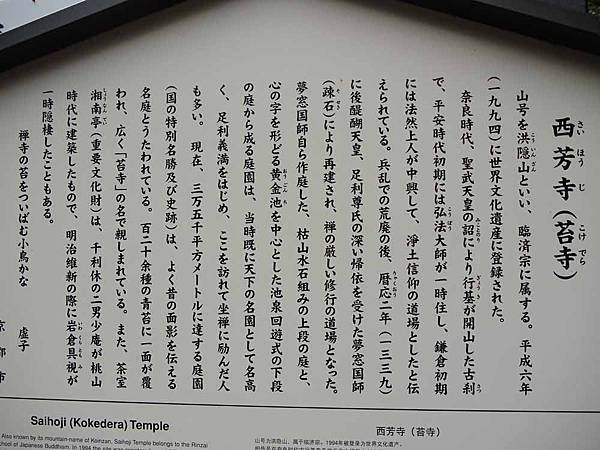 西芳寺（苔寺）
さい ほう じ こけ でら
山号を洪隠山といい、臨済宗に属する。平成六年
こういんざん
（一九九四）に世界文化遺産に登録された。
奈良時代、聖武天皇の詔により行基が開山した古刹
みことのり ぎょうき さつ
で、平安時代初期には弘法大師が一時住し、鎌倉初期
こうぼう
には法然上人が中興して、浄土信仰の道場としたと伝
えられている。兵乱での荒廃の後、暦応二年（一三三九）
りゃくおう
に後醍醐天皇、足利尊氏の深い帰依を受けた夢窓国師
（疎石）により再建され、禅の厳しい修行の道場となった。
そせき
夢窓国師自ら作庭した、枯山水石組みの上段の庭と、
心の字を形どる黄金池を中心とした池泉回遊式の下段
おうごんち
の庭から成る庭園は、当時既に天下の名園として名高
く、足利義満をはじめ、ここを訪れて坐禅に励んだ人
も多い。現在、三万五千平方メートルに達する庭園
（国の特別名勝及び史跡）は、よく昔の面影を伝える
名庭とうたわれている。百二十余種の青苔に一面が覆
われ、広く「苔寺」の名で親しまれている。また、茶室
湘南亭（重要文化財）は、千利休の二男少庵が桃山
しょうなんてい
時代に建築したもので、明治維新の際に岩倉具視が
いわくらともみ
一時隠棲したこともある。
禅寺の苔をついばむ小鳥かな 虚子
京都市
Saihoji (Kokedera) Temple
Also known by its mountain-name of Koinzan, Saihoji Temple belongs to the Rinzai
school of Japanese Buddhism. In 1994 the site was
西芳寺（苔寺）
山号为洪隐山，属于临济宗。1994年被登录为世界文化遗产。